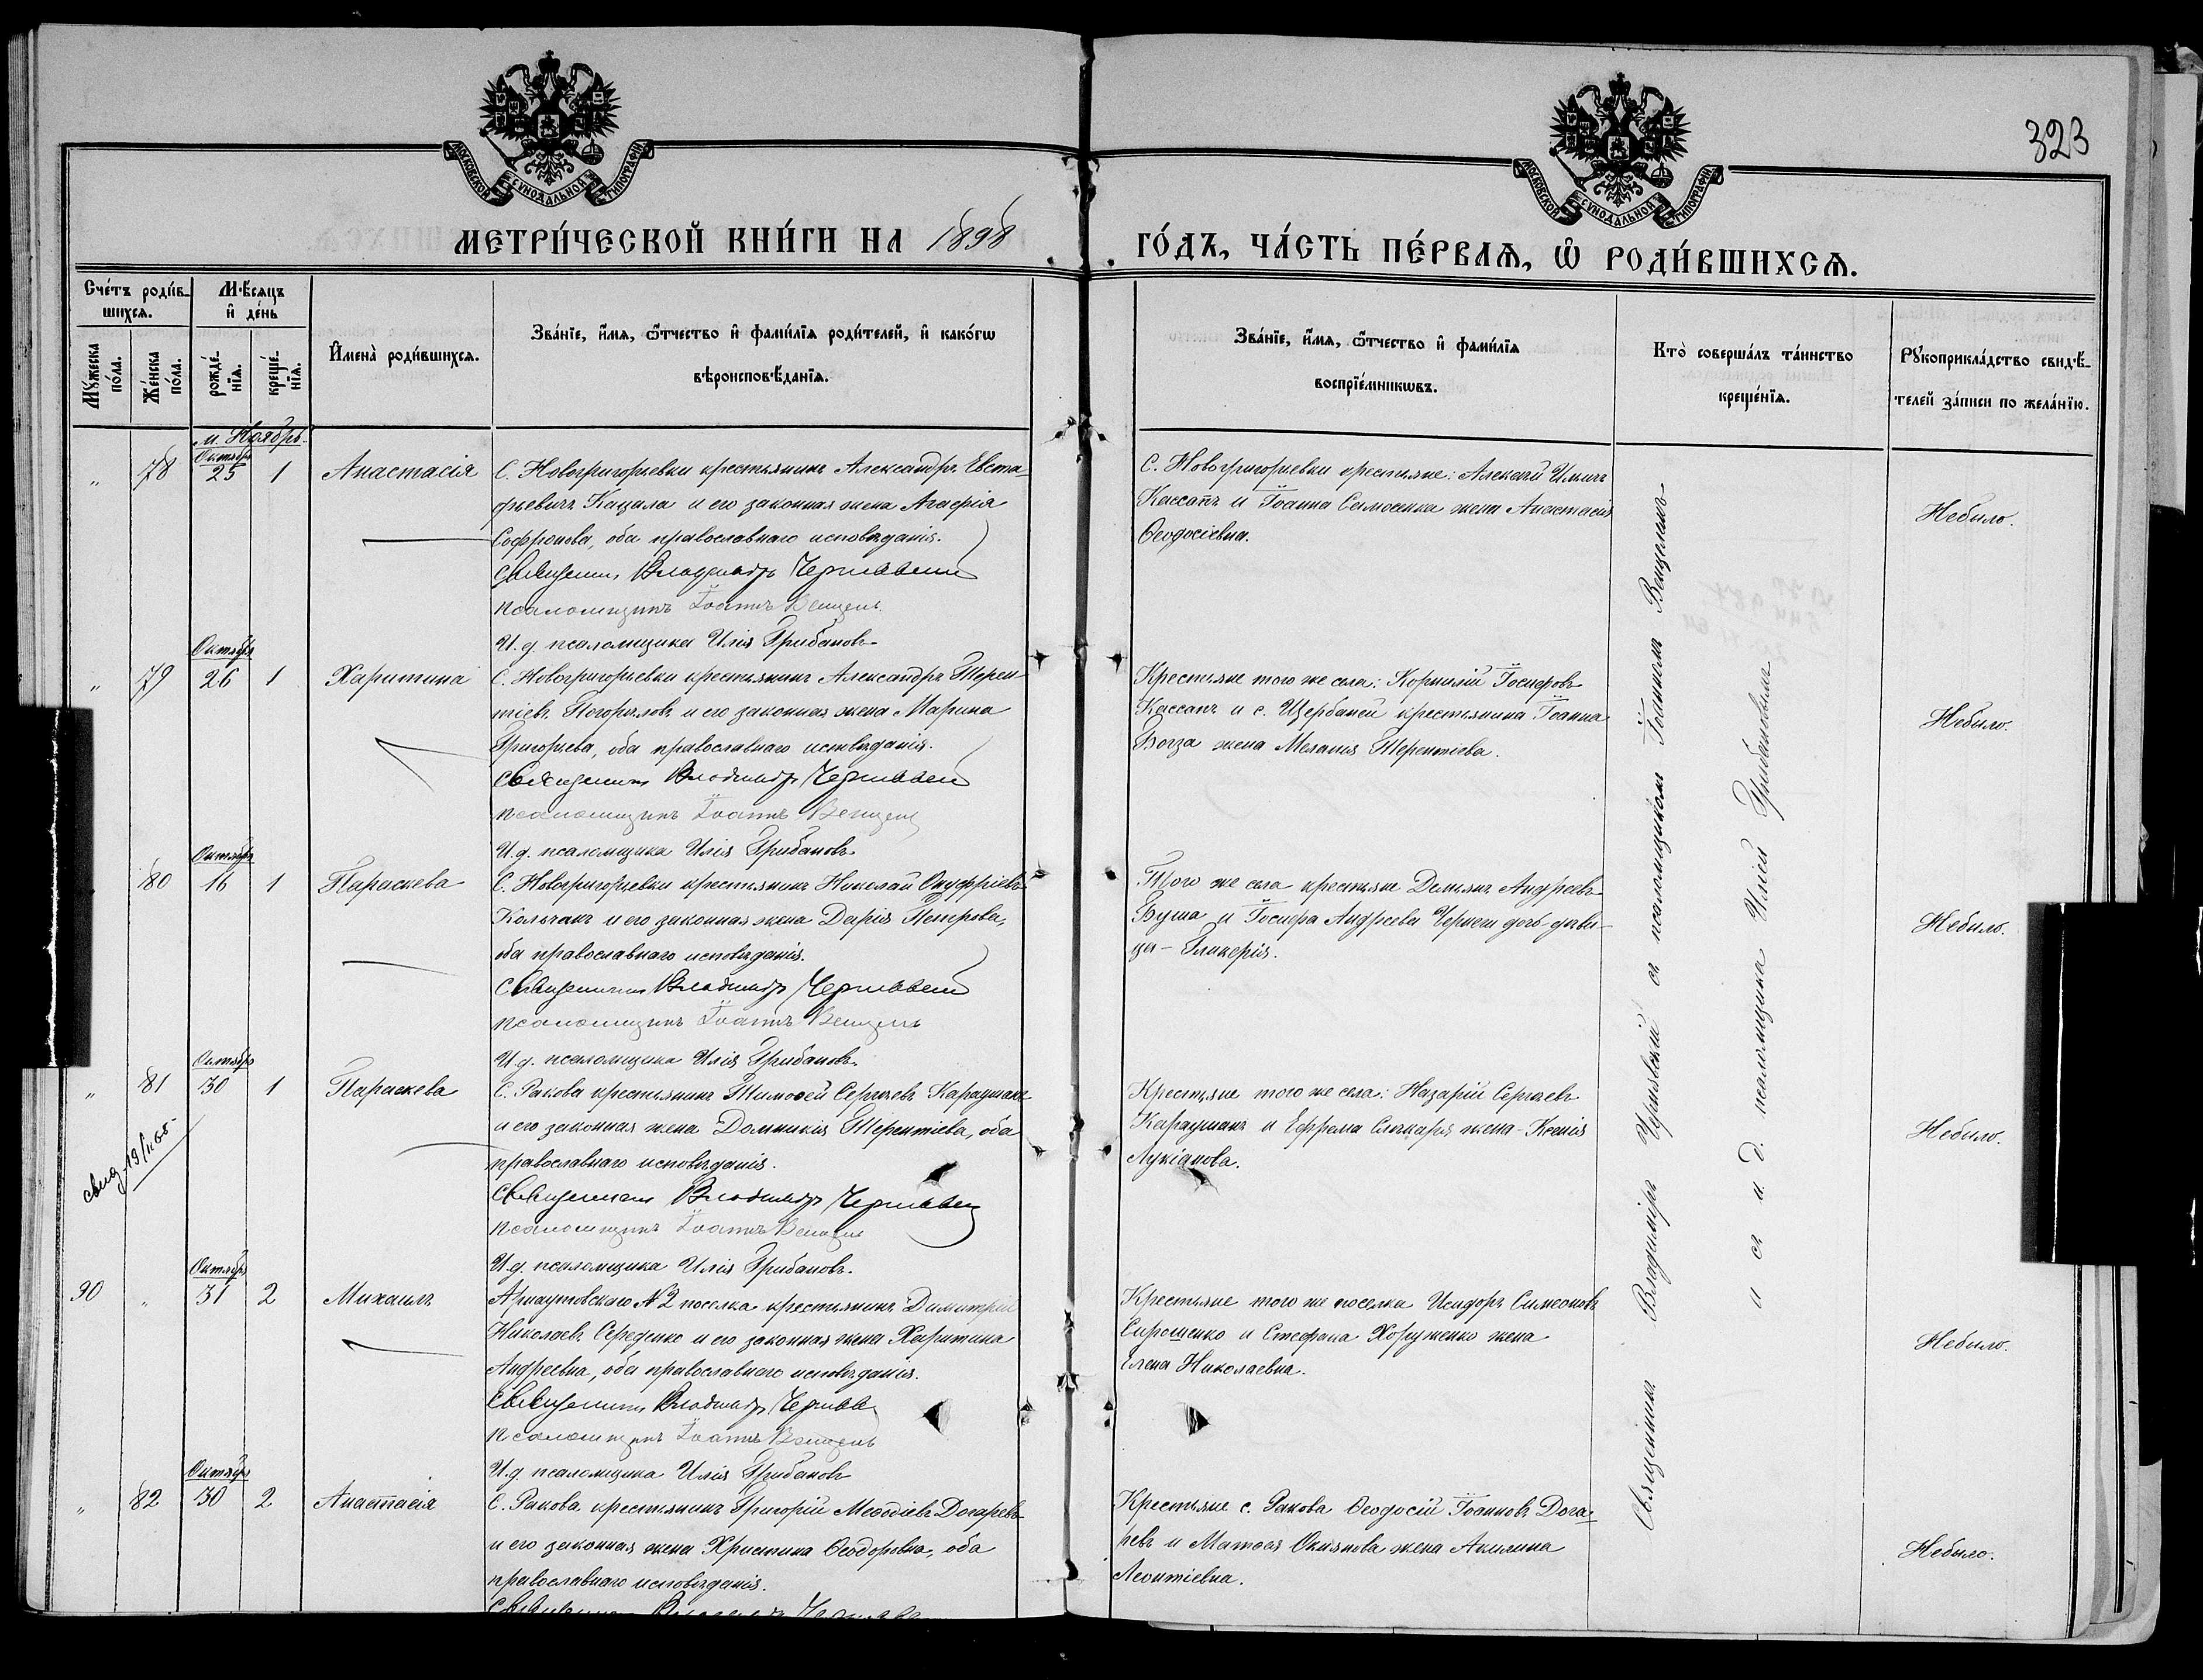 МОСКОВСКОЙ СѴНОДАЛЬНОЙ ТИПОГРАФІИ
МОСКОВСКОЙ СѴНОДАЛЬНОЙ ТИПОГРАФІИ
323
МЕТРИ́ЧЕСКОЙ КНИ́ГИ НА 1898
ГО́ДЪ, ЧА́СТЬ ПЕ́РВАѦ, Ѡ҆ РОДИ́ВШИХСѦ.
Сче́тъ роди́в-
шихсѧ.
Мѣ́сѧцъ
и҆ де́нь
Мꙋ́жеска
по́ла.
Же́нска
по́ла.
рожде́-
нїѧ.
креще́-
нїѧ.
И҆мена̀ роди́вшихсѧ.
Зва́нїе, и҆́мѧ, ѻ҆́тчество и҆ фами́лїѧ роди́телей, и҆ како́гѡ
вѣроисповѣ́данїѧ.
Зва́нїе, и҆́мѧ, ѻ҆́тчество и҆ фами́лїѧ
воспрїе́мникѡвъ.
Кто̀ соверша́лъ та́инство
креще́нїѧ.
Рꙋкоприкла́дство свидѣ́-
телей за́писи по жела́нїю.
м. Ноябрь.
Октябр
" 78 25 1 Анастасія
С. Новогригорьевки крестьянинъ Александръ Евста-
фьевичъ Кацала и его законная жена Агафія
Софронова, оба православнаго исповѣданія.
Священникъ Владимиръ Чернявскій
Псаломщикъ Іоаннъ Венцель
И.д. псаломщика Илія Грибановъ
С. Новогригорьевки крестьяне: Алексѣй Ильичъ
Кассапъ и Іоанна Самосенка жена Анастасія
Ѳеодосіевна.
Небыло.
Октябр
" 79 26 1 Харитина
С. Новогригорьевки крестьянинъ Александръ Терен
тіевъ Погорѣловъ и его законная жена Марина
Григорьева, оба православнаго исповѣданія.
Священникъ Владимиръ Чернявскій
Псаломщикъ Іоаннъ Венцель
И.д. псаломщика Илія Грибановъ
Крестьяне того же села: Корнилій Іосифовъ
Кассапъ и с. Щербаней крестьянина Іоанна
Богза жена Меланія Терентіева.
Небыло.
Октябр
80 16 1 Параскева
С. Новогригорьевки крестьянинъ Николай Онуфріевъ
Кольчакъ и его законная жена Дарія Петрова,
оба православнаго исповѣданія.
Священникъ Владимиръ Чернявскій
Псаломщикъ Іоаннъ Венцель
И.д. псаломщика Илія Грибановъ.
Того же села крестьяне Демьянъ Андреевъ
Буша и Іосифа Андреева Чернеги дочь-дѣви-
ца - Гликерія.
Небыло.
Октябр
" 81 30 1 Параскева
С. Ракова крестьянинъ Тимоѳей Сергѣевъ Караушанъ
и его законная жена Домникія Терентіева, оба
православнаго исповѣданія.
Священникъ Владимиръ Чернявскій
Псаломщикъ Іоаннъ Венцель
И.д. псаломщика Илія Грибановъ.
Крестьяне того же села: Назарій Сергѣевъ
Караушанъ и Ефрема Слюсаря жена - Ксенія
Лукіанова.
Небыло.
Октябр
90 " 31 2 Михаилъ
Арнаутовскаго № 2 поселка крестьянинъ Димитрій
Николаевъ Середенко и его законная жена Харитина
Андреевна, оба православнаго исповѣданія.
Священникъ Владимиръ Чернявс
Псаломщикъ Іоаннъ Венцель
И.д. псаломщика Илія Грибановъ
Крестьяне того же поселка Исидоръ Симеоновъ
Сирощенко и Стефана Хоруженко жена
Елена Николаевна.
Небыло.
Октябр
" 82 30 2 Анастасія
С. Ракова крестьянинъ Григорій Меѳодіевъ Догаревъ
и его законная жена Христина Ѳеодоровна, оба
православнаго исповѣданія.
Крестьяне с. Ракова Ѳеодосій Іоанновъ Дога-
ревъ и Матвея Окиянова жена Акилина
Леонтіевна.
Небыло.
Священникъ Владиміръ Чернявскій съ псаломщикомъ Іоанномъ Венцелемъ
и съ и. д. псаломщика Иліей Грибановымъ